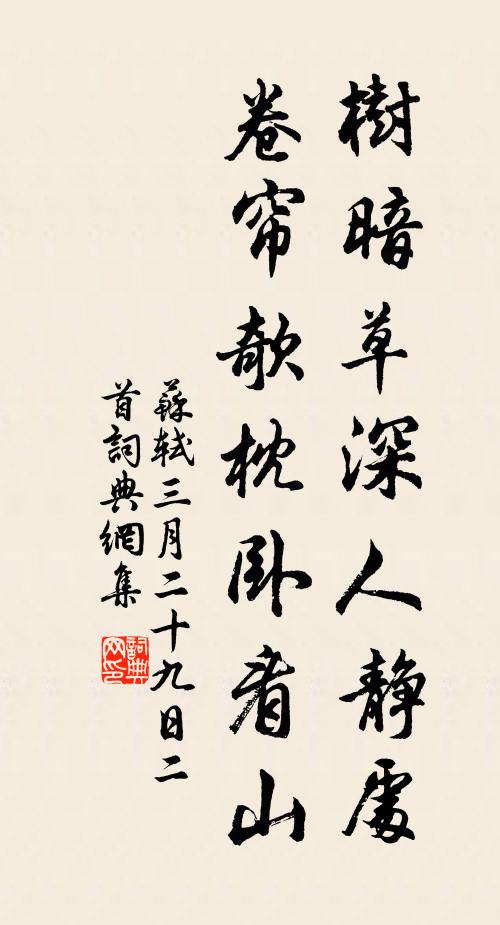 樹暗草深人靜處
卷帘欹枕卧看山
蘇軾三月二十九日二
首詞典網集
詞典
网印